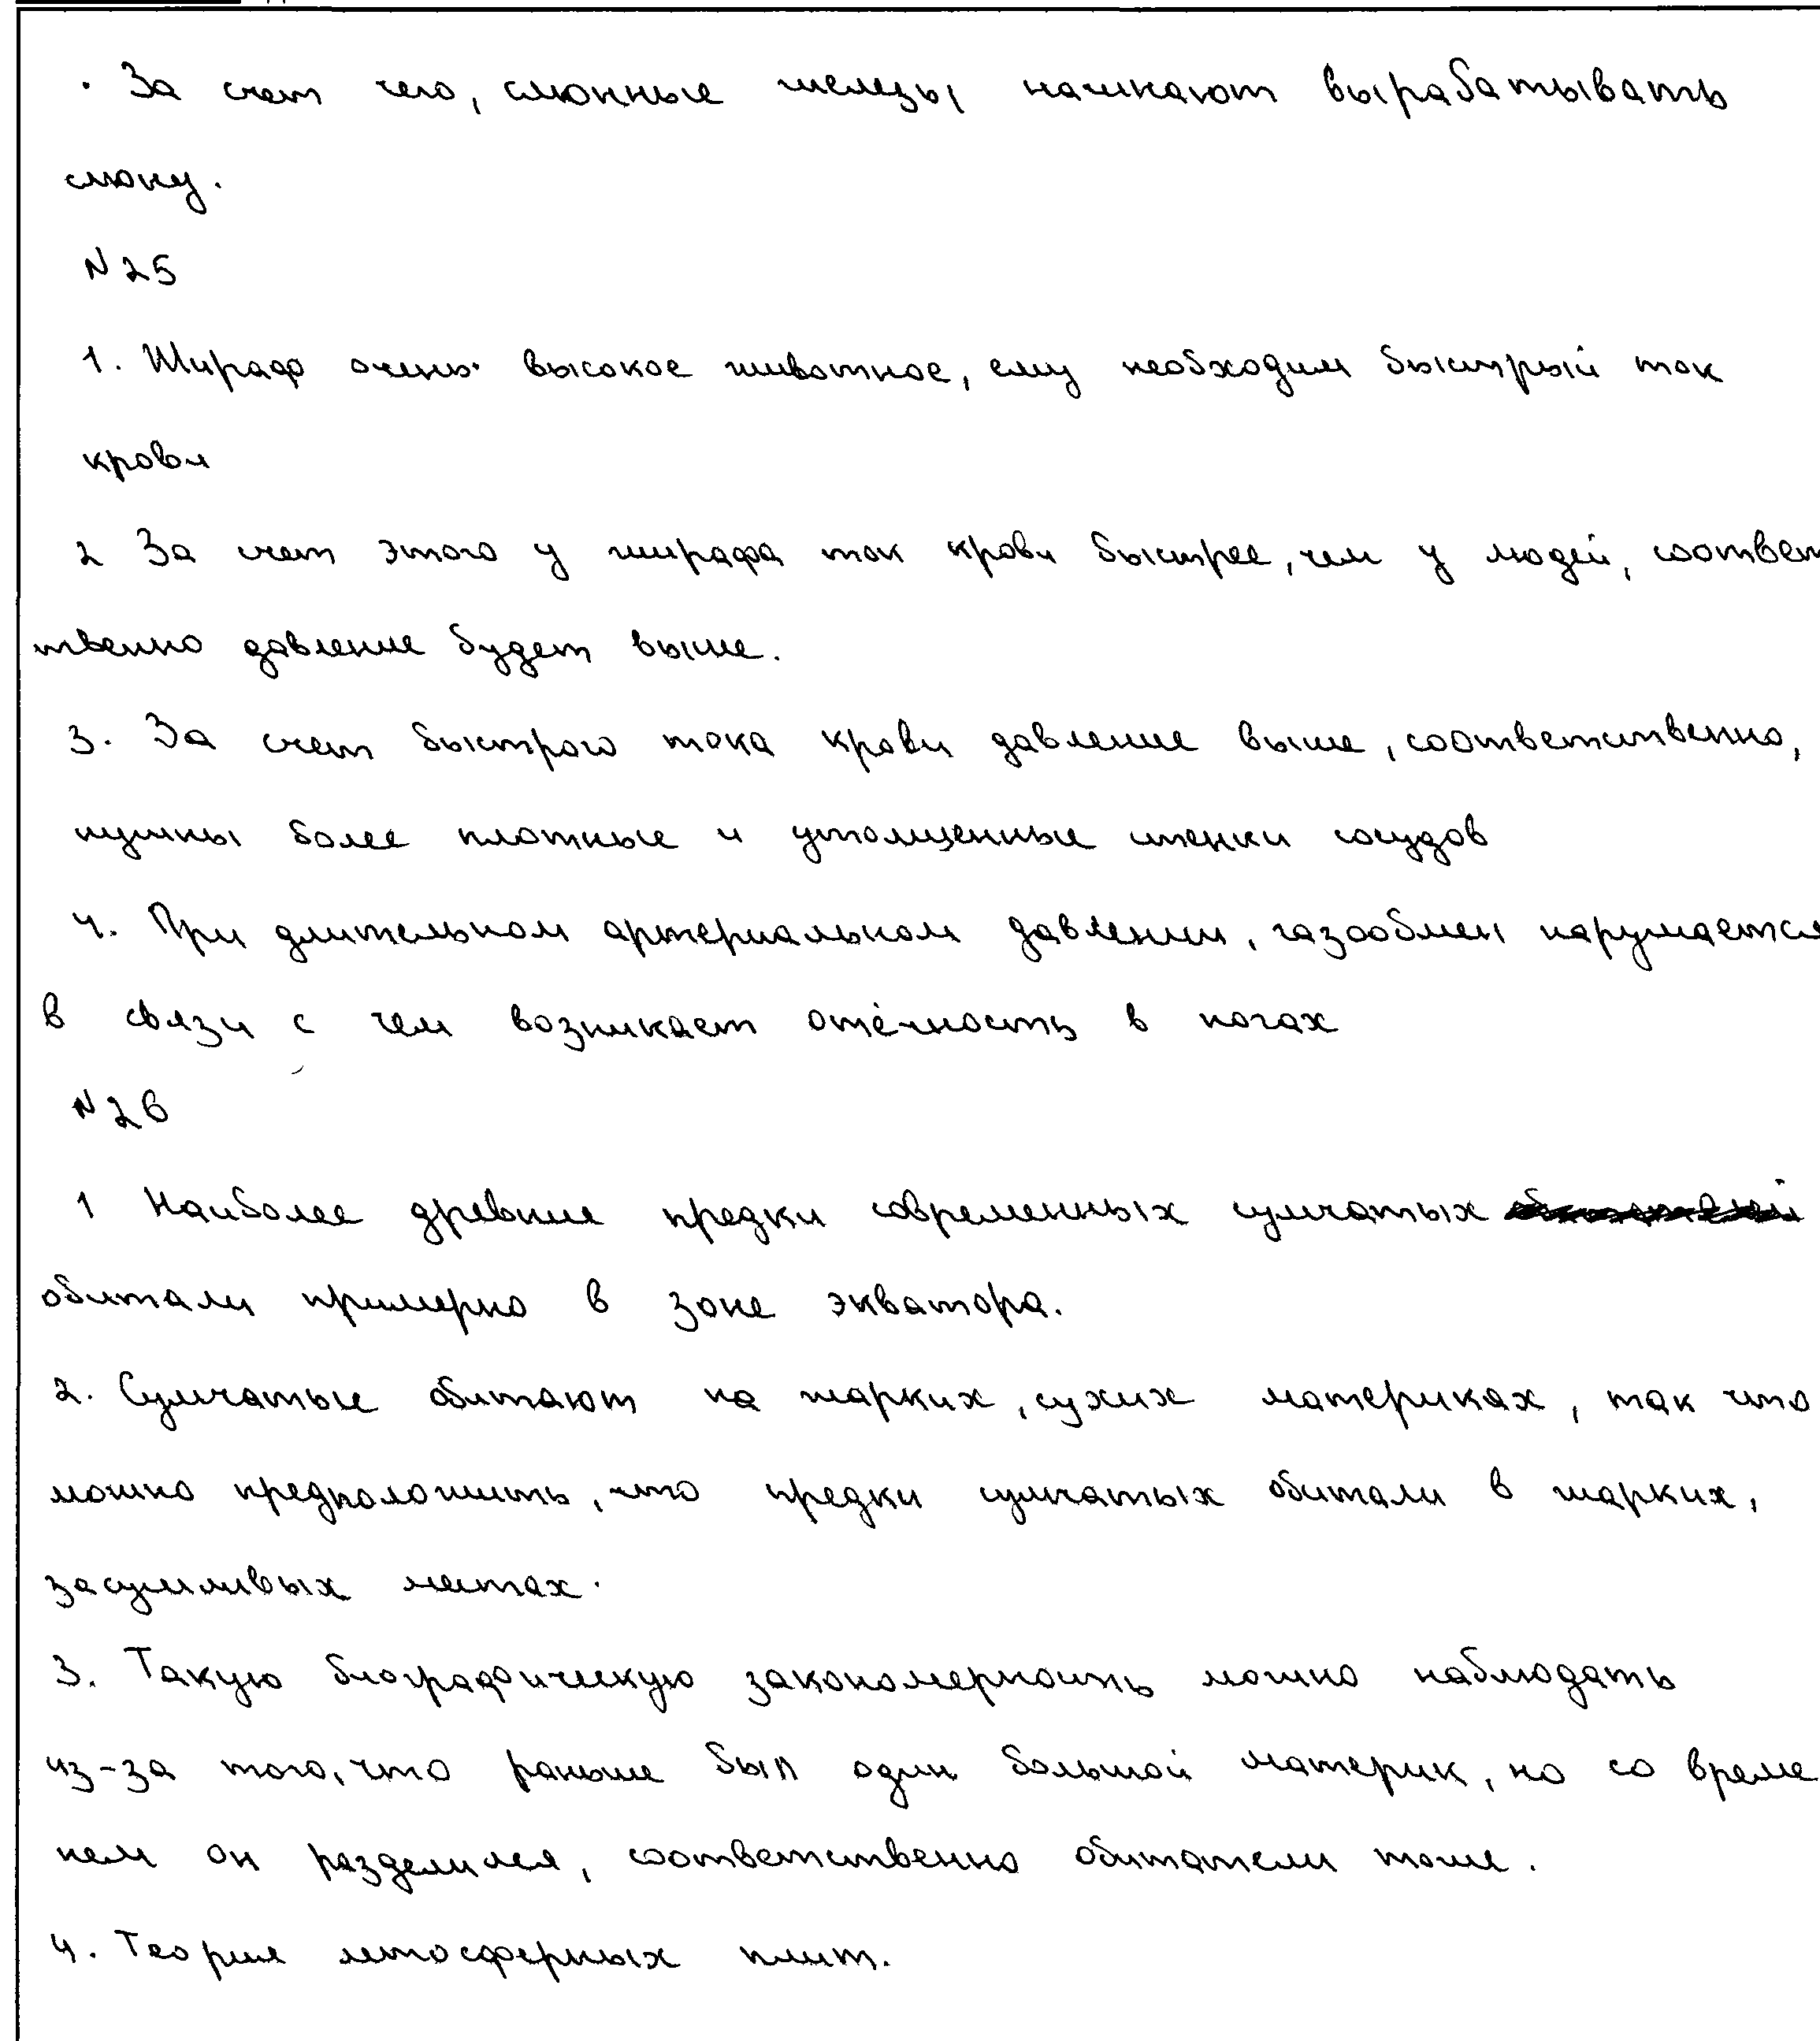 · За счет чего, слюнные железы, начинают вырабатывать
слюну.
N 25
1. Жираф очень высокое животное, ему необходим быстрый ток
крови
2 За счет этого у жирафа ток крови быстрее, чем у людей, соответ
твенно давление будет выше.
3. За счет быстрого тока крови давление выше, соответственно,
нужны более плотные и утолщенные стенки сосудов
4. При длительном артериальном давлении, газообмен нарушается
в связи с чем возникает отёчность в ногах
N 26
1 Наиболее древние предки современных сумчатых
обитали примерно в зоне экватора.
2. Сумчатые обитают на жарких, сухих материках, так что
можно предположить, что предки сумчатых обитали в жарких,
засушливых местах.
3. Такую биографическую закономерность можно наблюдать
из-за того, что раньше был один большой материк, но со време
нем он разделился, соответственно обитатели тоже.
4. Теория литосферных плит.